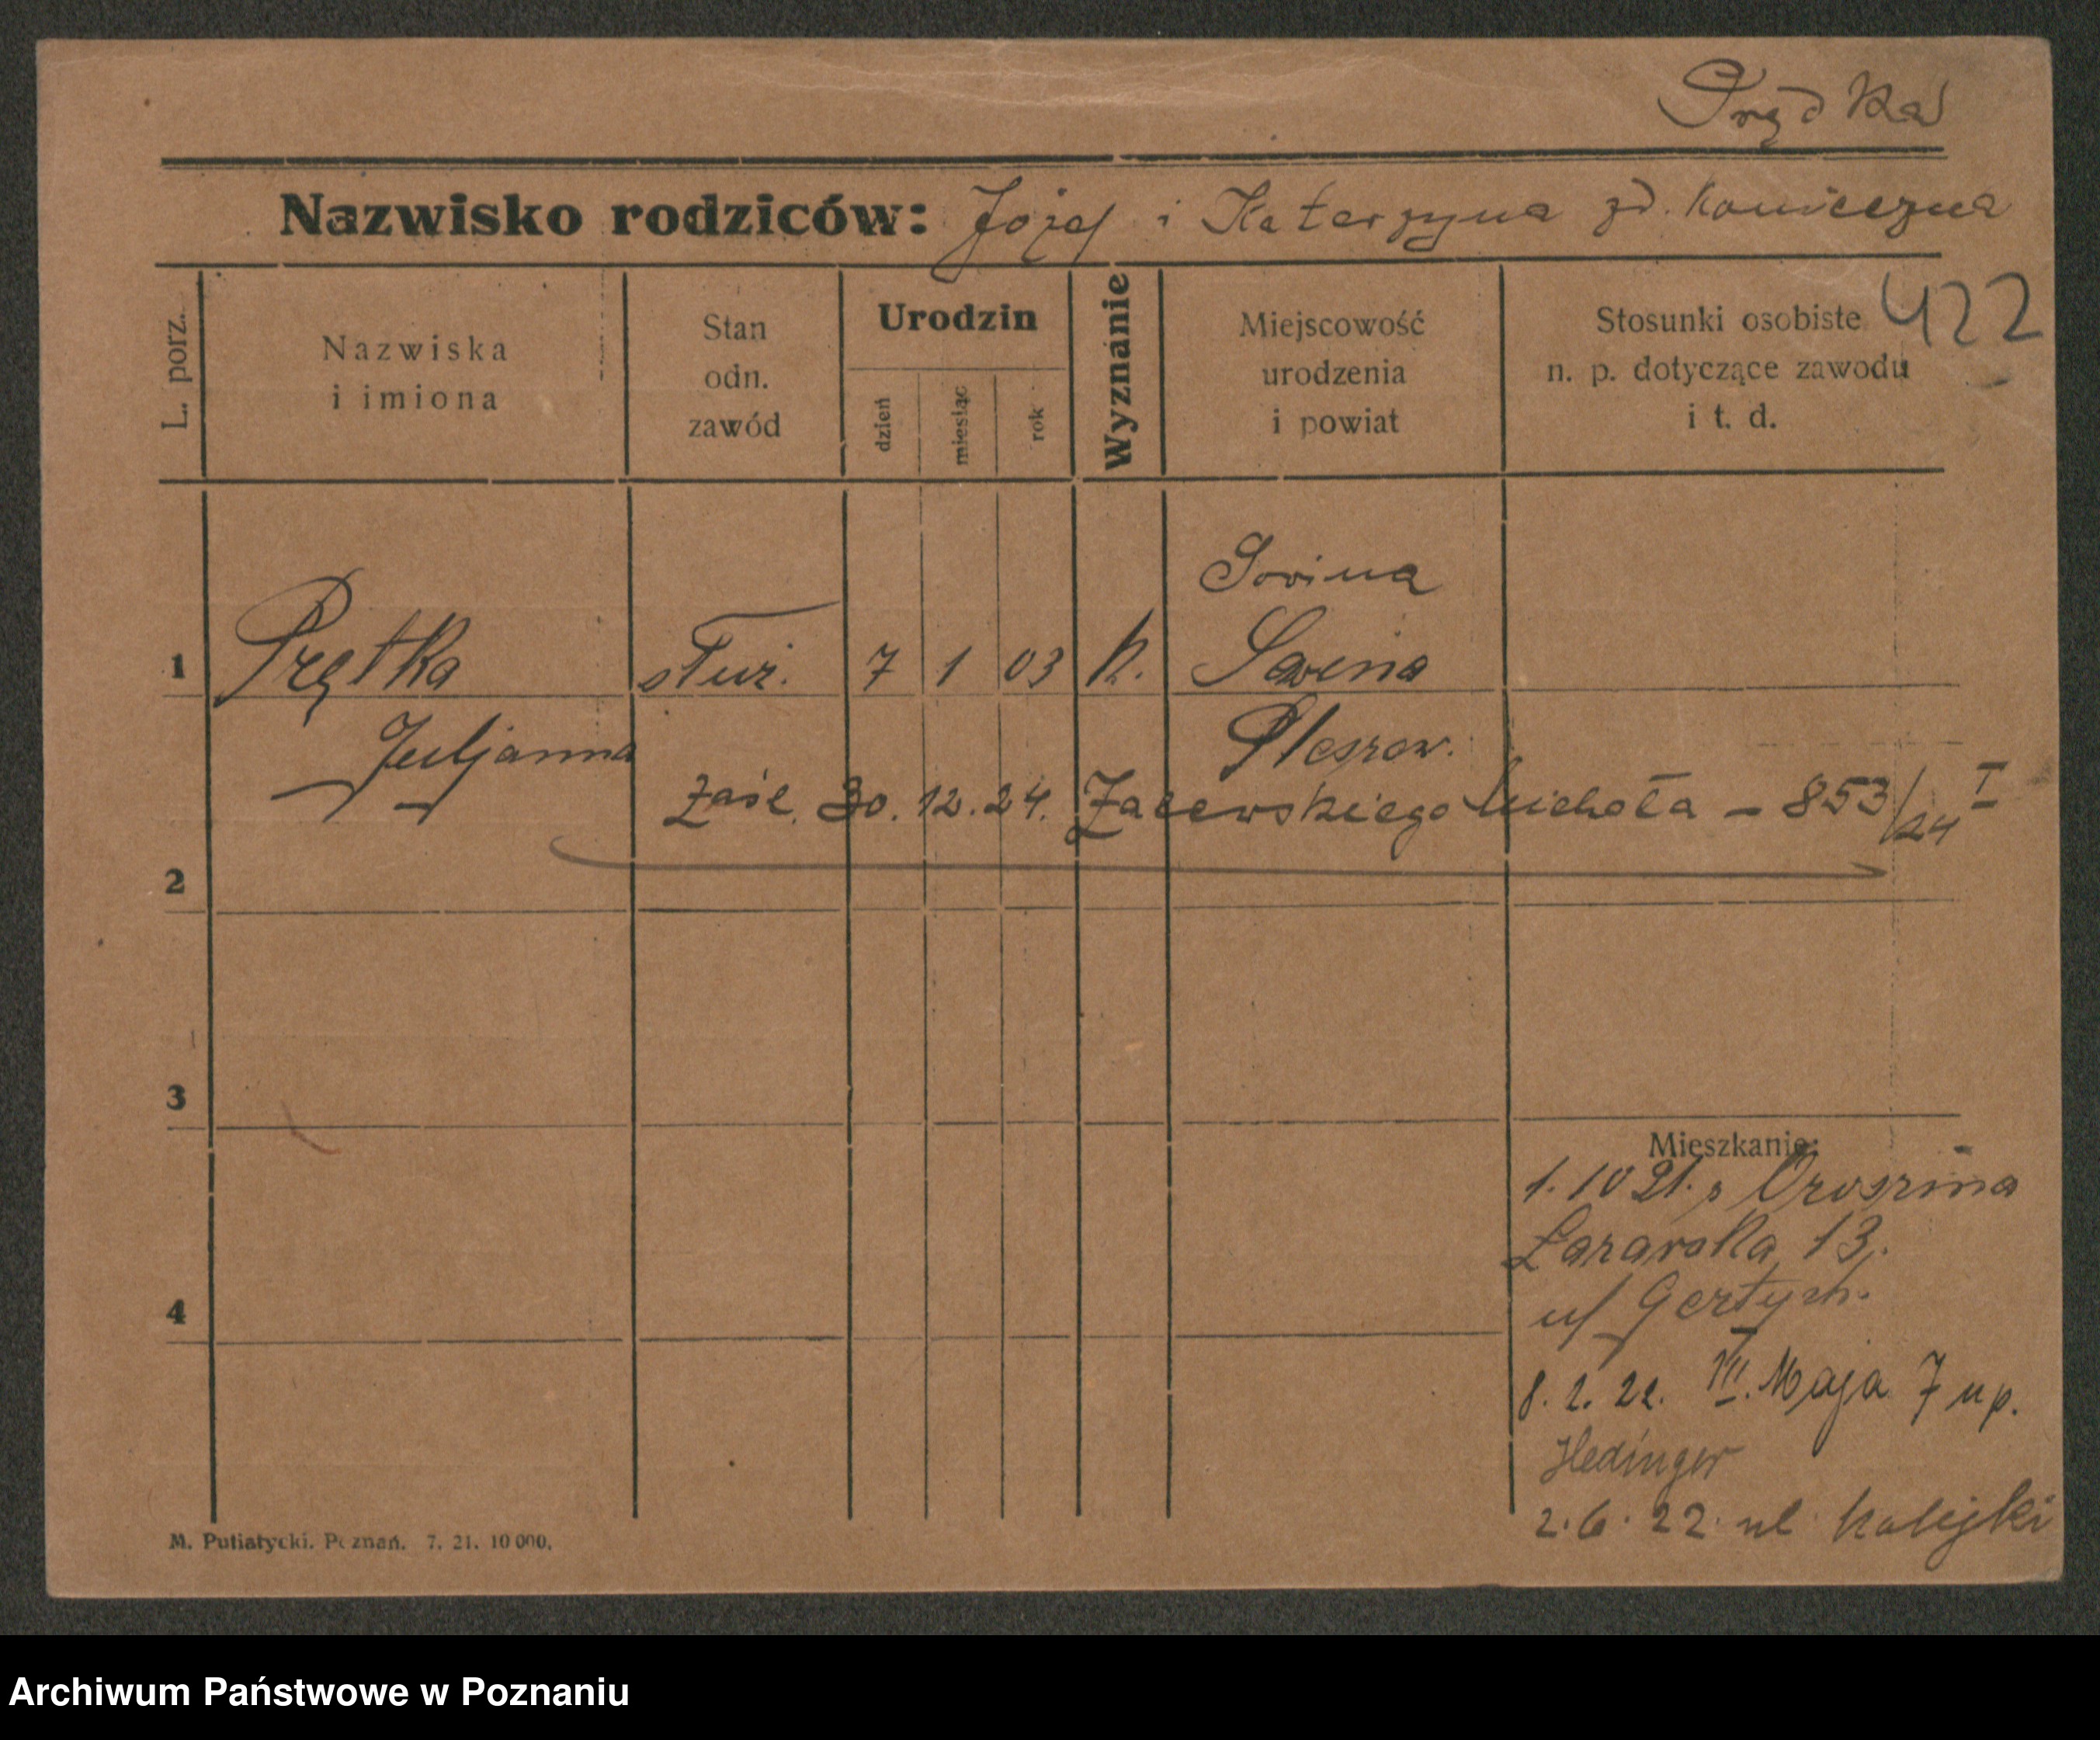 Prądka
Nazwisko rodziców: Józef i Katarzyna zd. Konieczna
422
L. porz.
Nazwiska
i imiona
Stan
odn.
zawód
Urodzin
dzień
miesiąc
rok
Wyznanie
Miejscowość
urodzenia
i powiat
Stosunki osobiste
n. p. dotyczące zawodu
i t. d.
Sowina
1 Prętka służ. 7 1 03 k. Sowina
Juljanna Pleszew.
zaśl. 30. 12. 24. Zalewskiego Michała – 853/24 I
2
3
Mieszkanie:
1. 10 21. z
13.
u/ Gertych.
4
8. 2. 22. III. Maja 7 u p.
Hedinger
2. 6. 22. ul
M. Putiatycki. Poznań. 7. 21. 10 000.
Archiwum Państwowe w Poznaniu